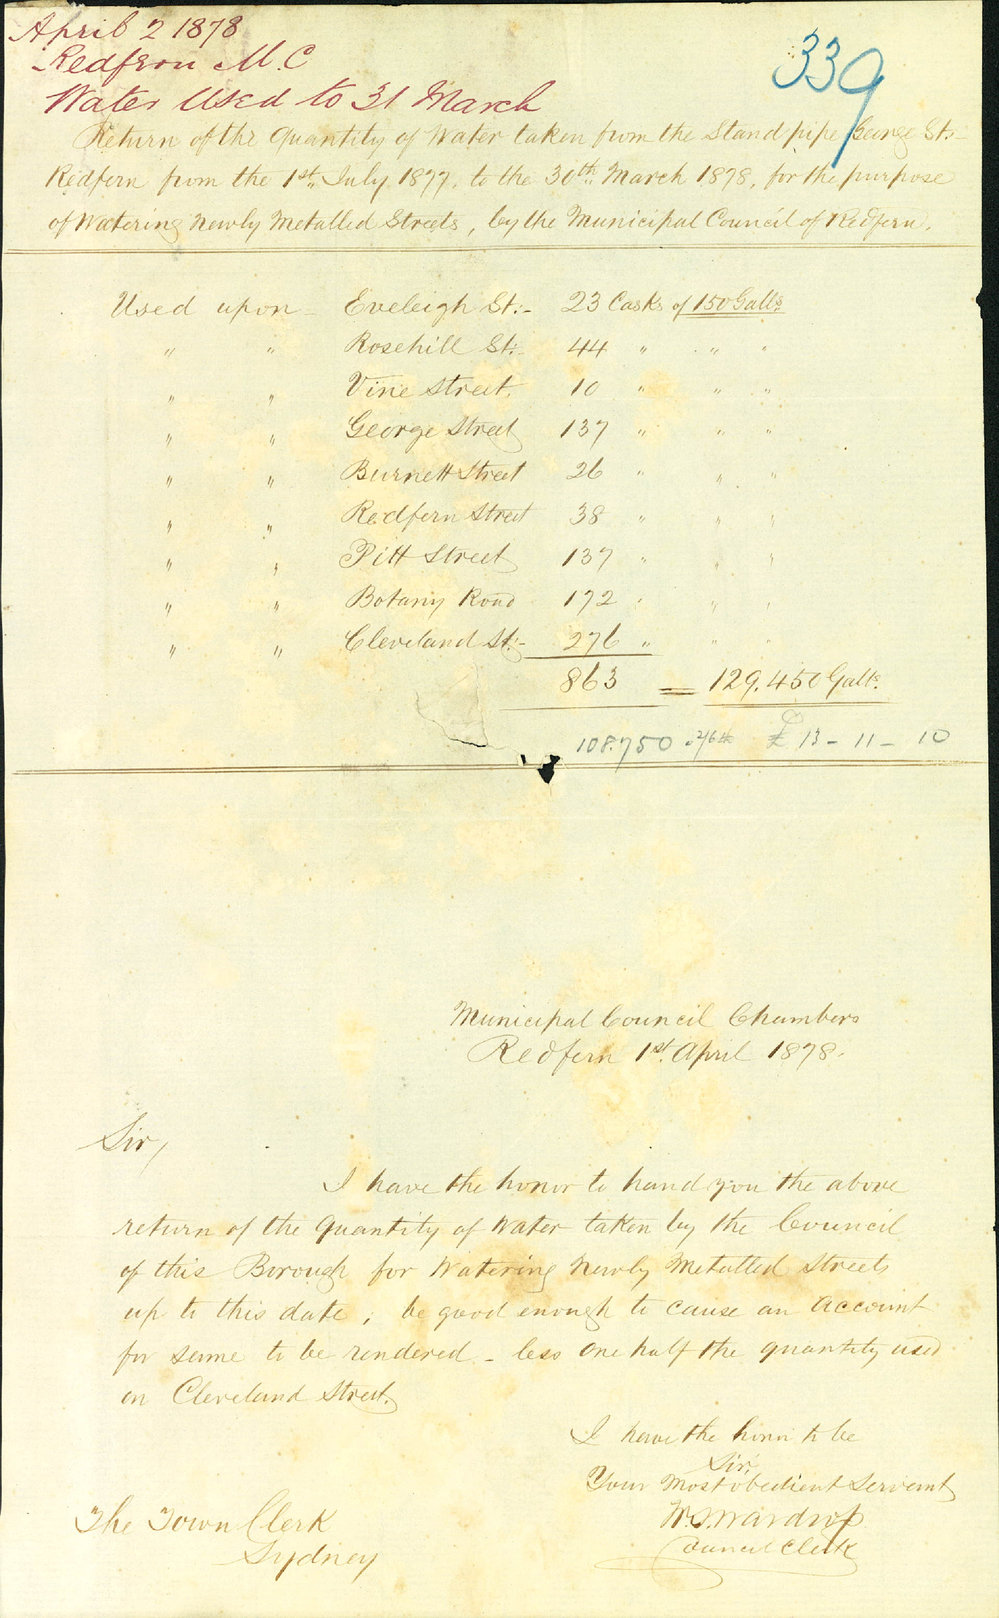 April 2 1878
Redfern M.C
Water Used to 31 March
339
Return of the Quantity of Water taken from the Stand pipe George St:-
Redfern from the 1st July 1877, to the 30th March 1878, for the purpose
of Watering Newly Metalled Streets, by the Municipal Council of Redfern.
Used upon - Eveleigh St:- 23 Casks of 150 Galls
" " Rosehill St:- 44 " " "
" " Vine Street. 10 " " "
" " George Street 137 " " "
" " Burnett Street 26 " " "
" " Redfern Street 38 " " "
" " Pitt Street 137 " " "
" " Botany Road 172 " " "
" " Cleveland St:- 276 " " "
863 = 129.450 Galls.
108.750 2/6 £ 13 - 11 - 10
Municipal Council Chambers
Redfern 1st April 1878.
Sir,
I have the honor to hand you the above
return of the Quantity of Water taken by the Council
of this Borough for Watering Newly Metalled Streets
up to this date, be good enough to cause an Account
for same to be rendered - less one half the quantity used
on Cleveland Street.
I have the honor to be
Sir,
Your most obedient Servant
W.S. Wardrop
Council Clerk
The Town Clerk
Sydney